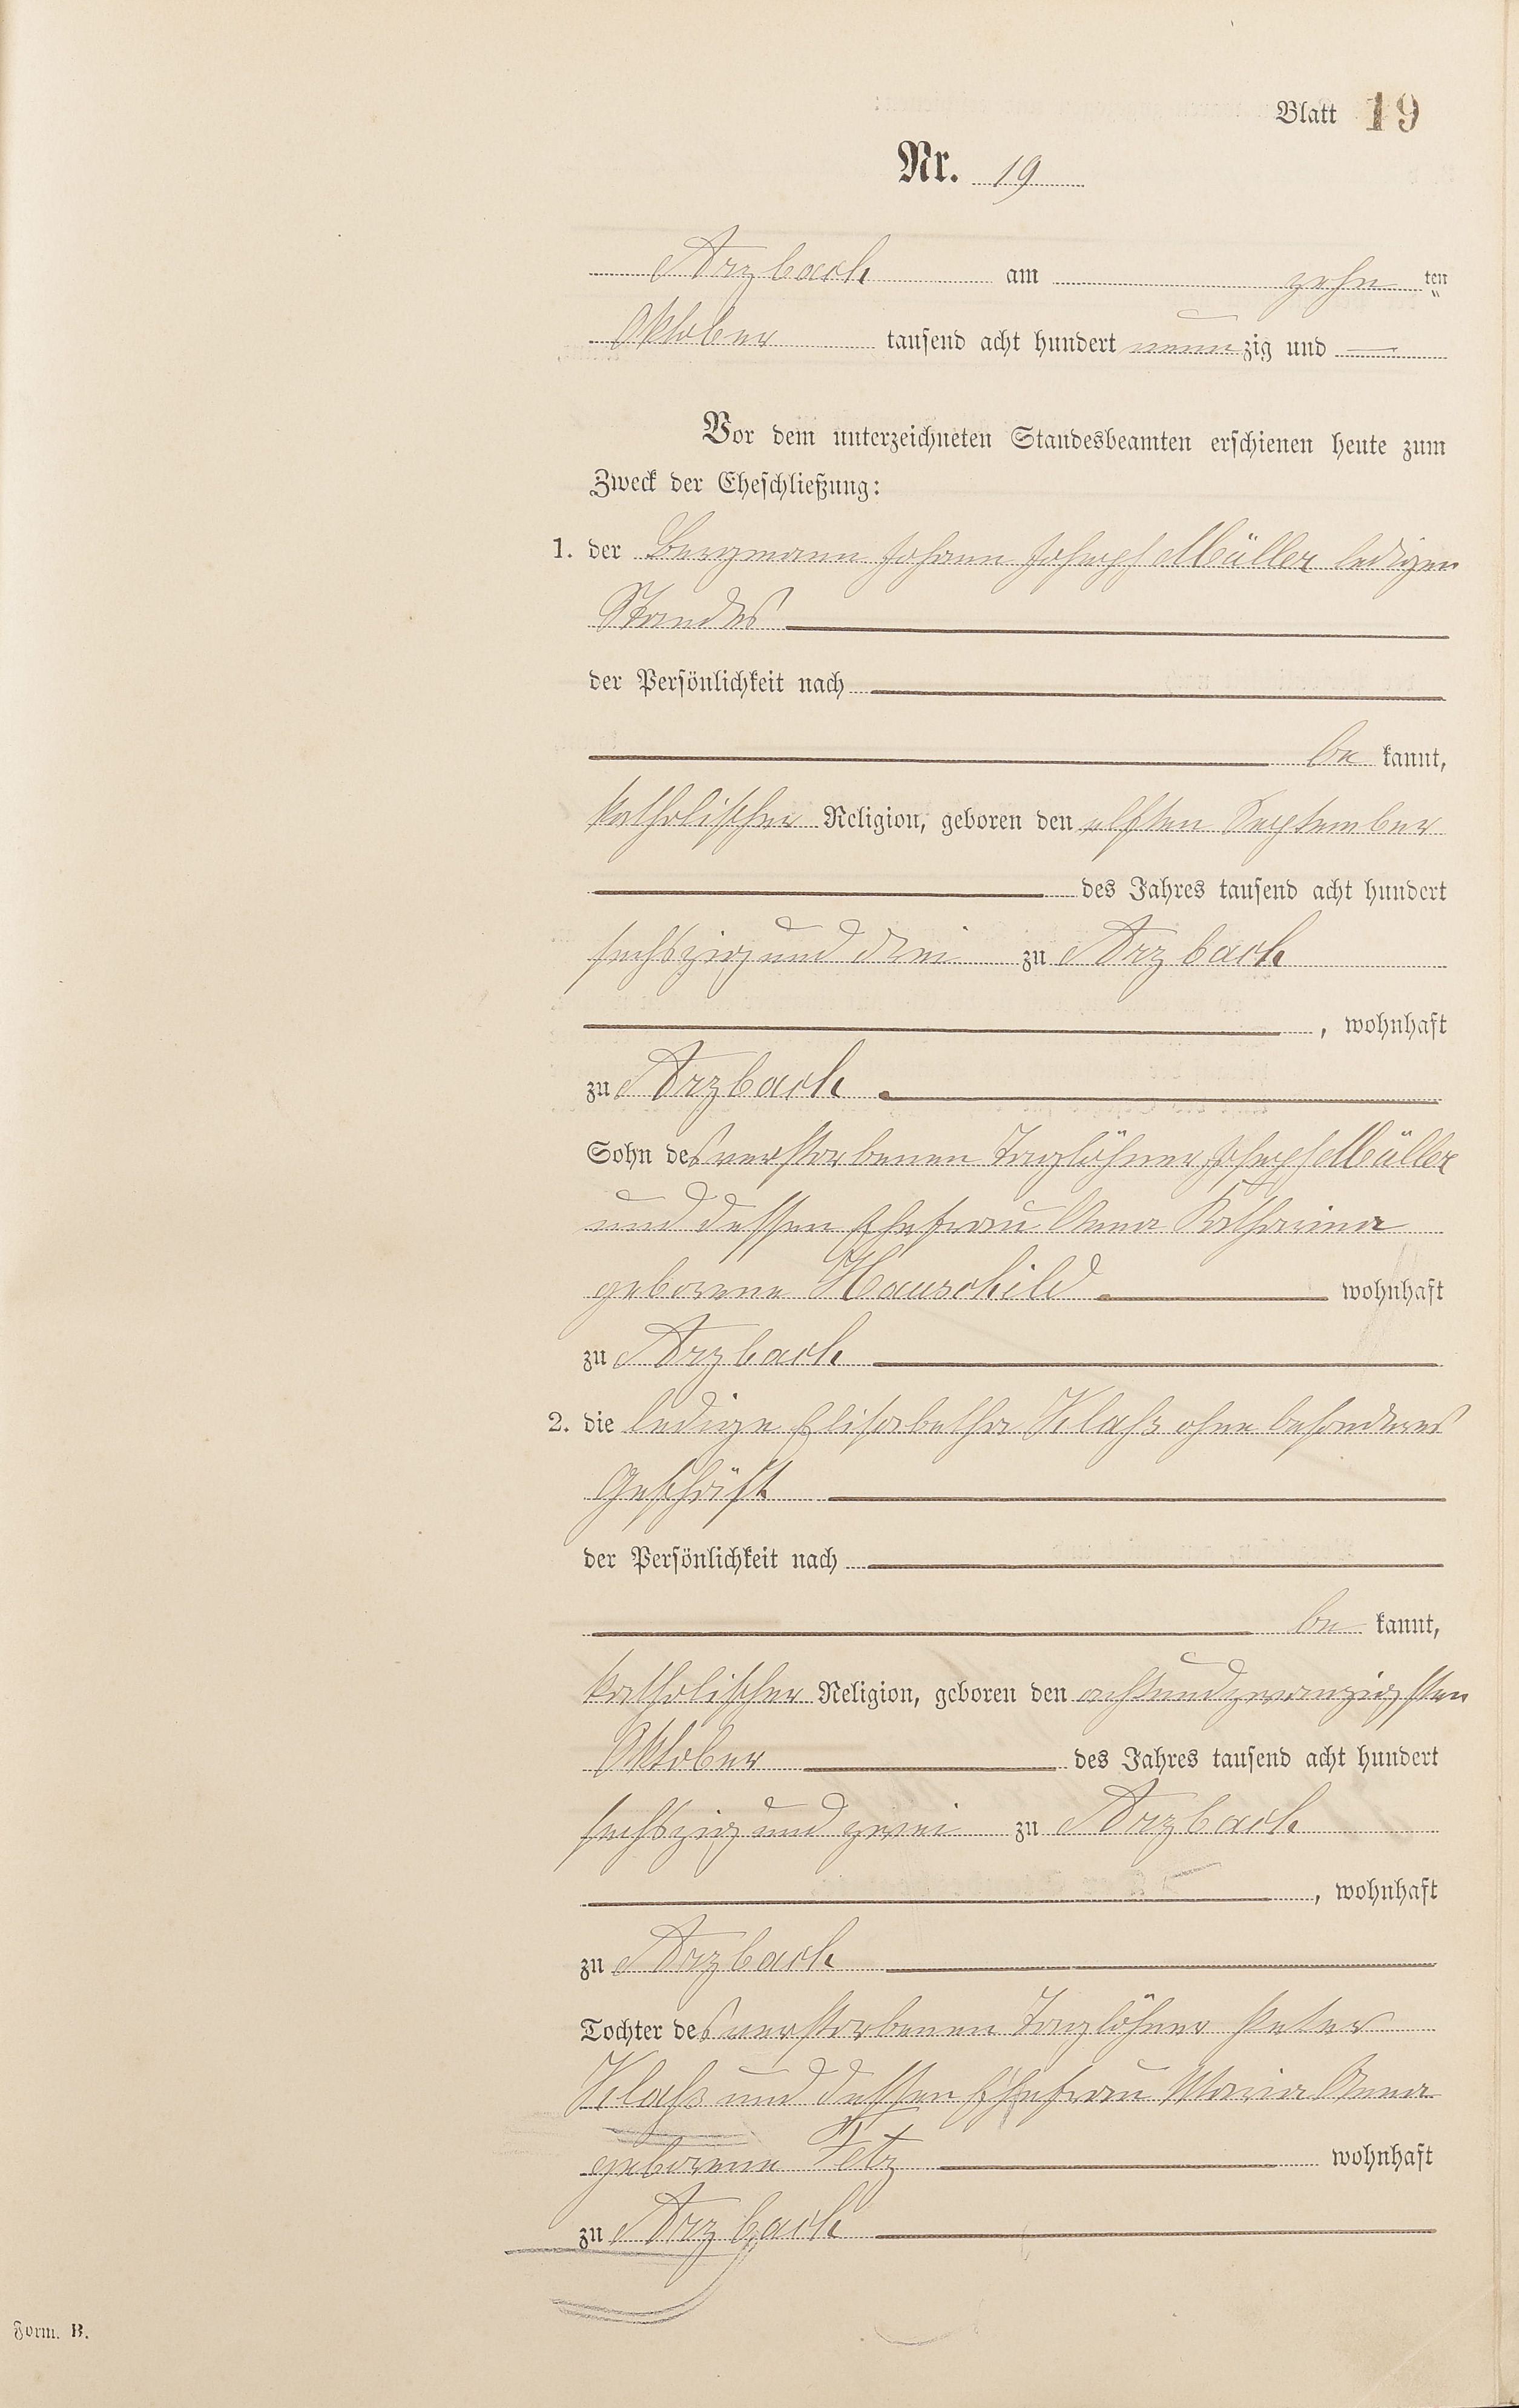 Blatt 19
Nr. 19
Arzbach am zehn ten
Oktober tausend acht hundert neun zig und —
Vor dem unterzeichneten Standesbeamten erschienen heute zum
Zweck der Eheschließung:
1. der Bergmann Johann Joseph Müller ledigen
Standes
der Persönlichkeit nach
be kannt,
katholischer Religion, geboren den elften September
des Jahres tausend acht hundert
sechszig und drei zu Arzbach
, wohnhaft
zu Arzbach
Sohn des verstorbenen Taglöhner Joseph Müller
und dessen Ehefrau Anna Katharina
geborene Hauschild wohnhaft
zu Arzbach
2. die ledige Elisabetha Klaß ohne besonderes
Geschäft
der Persönlichkeit nach
be kannt,
katholischer Religion, geboren den achtundzwanzigsten
Oktober des Jahres tausend acht hundert
sechszig und zwei zu Arzbach
, wohnhaft
zu Arzbach
Tochter des verstorbenen Taglöhner Peter
Klaß und dessen Ehefrau Maria Anna
geborene Fetz wohnhaft
zu Arzbach
Form. B.